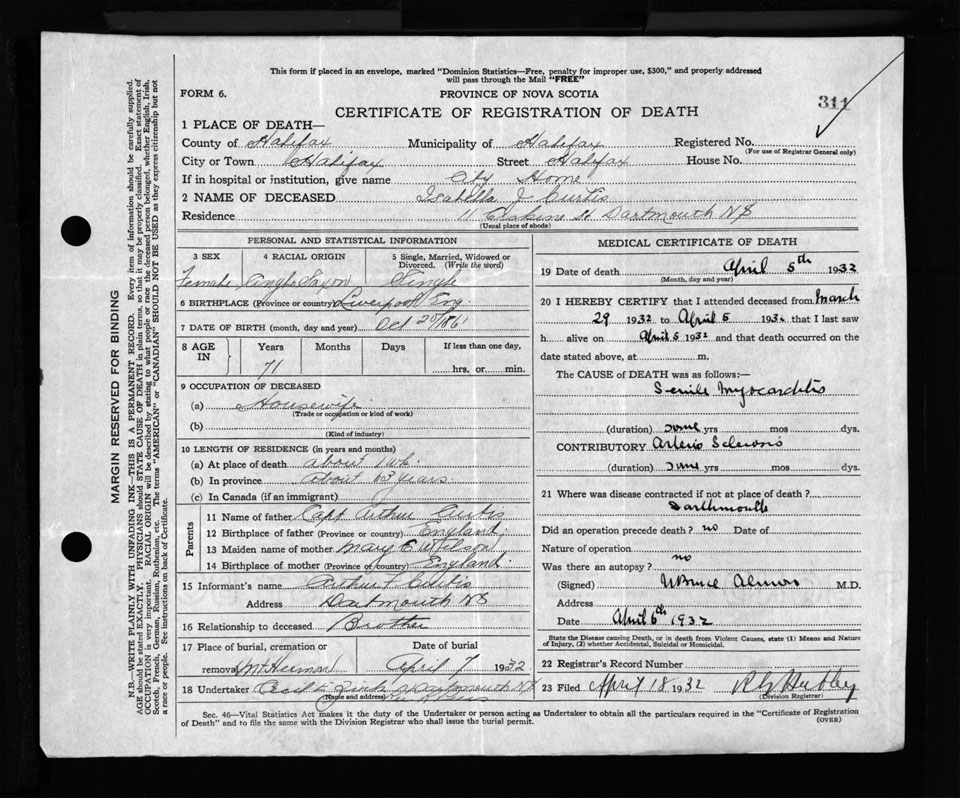 This form if placed in an envelope, marked "Dominion Statistics—Free, penalty for improper use, $300," and properly addressed
will pass through the Mail "FREE"
FORM 6. PROVINCE OF NOVA SCOTIA 311
CERTIFICATE OF REGISTRATION OF DEATH
1 PLACE OF DEATH—
County of Halifax Municipality of Halifax Registered No.
(For use of Registrar General only)
City or Town Halifax Street Halifax House No.
If in hospital or institution, give name City Home
2 NAME OF DECEASED Isabella J Curtis
Residence 11 Erskine St Dartmouth NS
(Usual place of abode)
PERSONAL AND STATISTICAL INFORMATION
3 SEX 4 RACIAL ORIGIN 5 Single, Married, Widowed or
Divorced. (Write the word)
Female Anglo Saxon Single
6 BIRTHPLACE (Province or country) Liverpool Eng
7 DATE OF BIRTH (month, day and year) Oct 20/1861
8 AGE IN Years Months Days If less than one day,
71 hrs. or min.
9 OCCUPATION OF DECEASED
(a) Housewife
(Trade or occupation or kind of work)
(b)
(Kind of industry)
10 LENGTH OF RESIDENCE (in years and months)
(a) At place of death about 1 wk.
(b) In province about 63 years
(c) In Canada (if an immigrant)
Parents
11 Name of father Capt Arthur Curtis
12 Birthplace of father (Province or country) England
13 Maiden name of mother Mary E Wilson
14 Birthplace of mother (Province or country) England
15 Informant's name Arthur F Curtis
Address Dartmouth NS
16 Relationship to deceased Brother
17 Place of burial, cremation or Date of burial
removal Mt Hermon April 7 1932
18 Undertaker Dartmouth NS
(Name and address)
MEDICAL CERTIFICATE OF DEATH
19 Date of death April 5th 1932
(Month, day and year)
20 I HEREBY CERTIFY that I attended deceased from March
29 1932 to April 5 1932 that I last saw
h alive on April 5 1932 and that death occurred on the
date stated above, at m.
The CAUSE of DEATH was as follows:—
Senile Myocarditis
(duration) some yrs mos dys.
CONTRIBUTORY Arterio Sclerosis
(duration) some yrs mos dys.
21 Where was disease contracted if not at place of death?
Darthmouth
Did an operation precede death? no Date of
Nature of operation
Was there an autopsy? no
(Signed) W Bruce Almon M.D.
Address
Date April 6th 1932
State the Disease causing Death, or in death from Violent Causes, state (1) Means and Nature
of Injury, (2) whether Accidental, Suicidal or Homicidal.
22 Registrar's Record Number
23 Filed April 18 1932
(Division Registrar)
Sec. 46—Vital Statistics Act makes it the duty of the Undertaker or person acting as Undertaker to obtain all the particulars required in the "Certificate of Registration
of Death" and to file the same with the Division Registrar who shall issue the burial permit. (OVER)
MARGIN RESERVED FOR BINDING
N.B.—WRITE PLAINLY WITH UNFADING INK—THIS IS A PERMANENT RECORD. Every item of information should be carefully supplied.
AGE should be stated EXACTLY. PHYSICIANS should STATE CAUSE OF DEATH in plain terms, so that it may be properly classified. Exact statement of
OCCUPATION is very important. RACIAL ORIGIN will be described by stating to what people or race the deceased person belonged, whether English, Irish,
Scotch, French, German, Russian, Ruthenian, etc. The terms "AMERICAN" or "CANADIAN" SHOULD NOT BE USED as they express citizenship but not
a race or people. See instructions on back of Certificate.